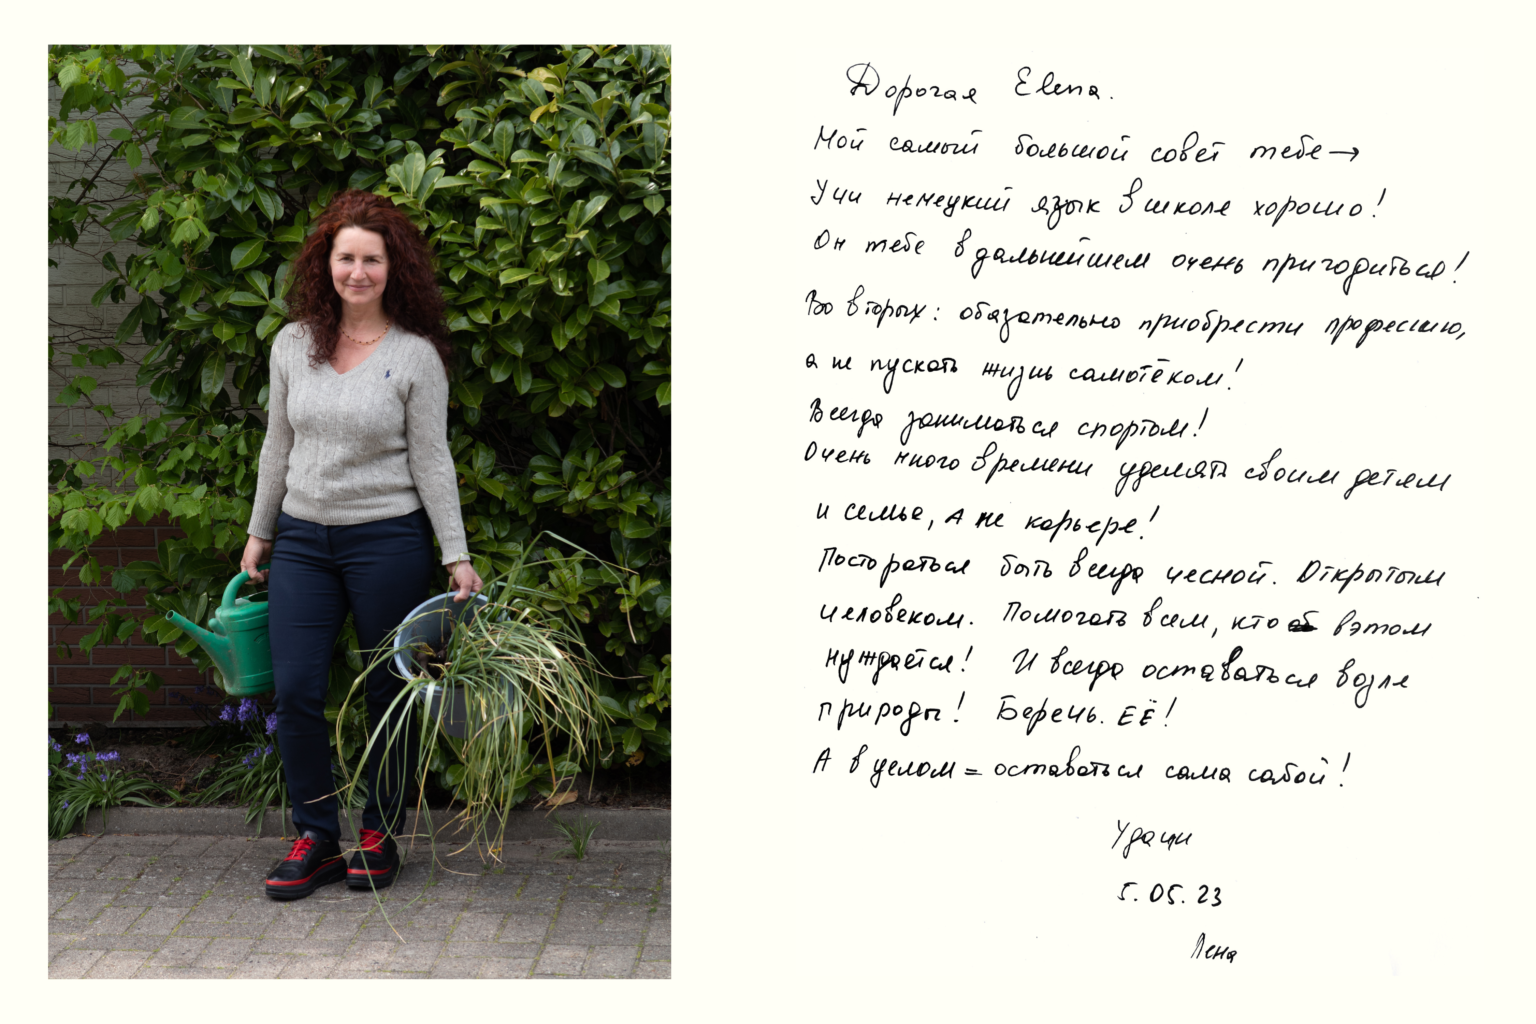 Дорогая Elena.
Мой самый большой совет тебе →
Учи немецкий язык в школе хорошо!
Он тебе в дальнейшем очень пригодиться!
Во вторых: обязательно приобрести профессию,
а не пускать жизнь самотёком!
Всегда заниматься спортом!
Очень много времени уделять своим детям
и семье, а не карьере!
Постораться быть всегда чесной. Открытым
человеком. Помогать всем, кто в этом
нуждается! И всегда оставаться возле
природы! Беречь. ЕЁ!
А в целом = оставаться сама сабой!
Удачи
5.05.23
Лена